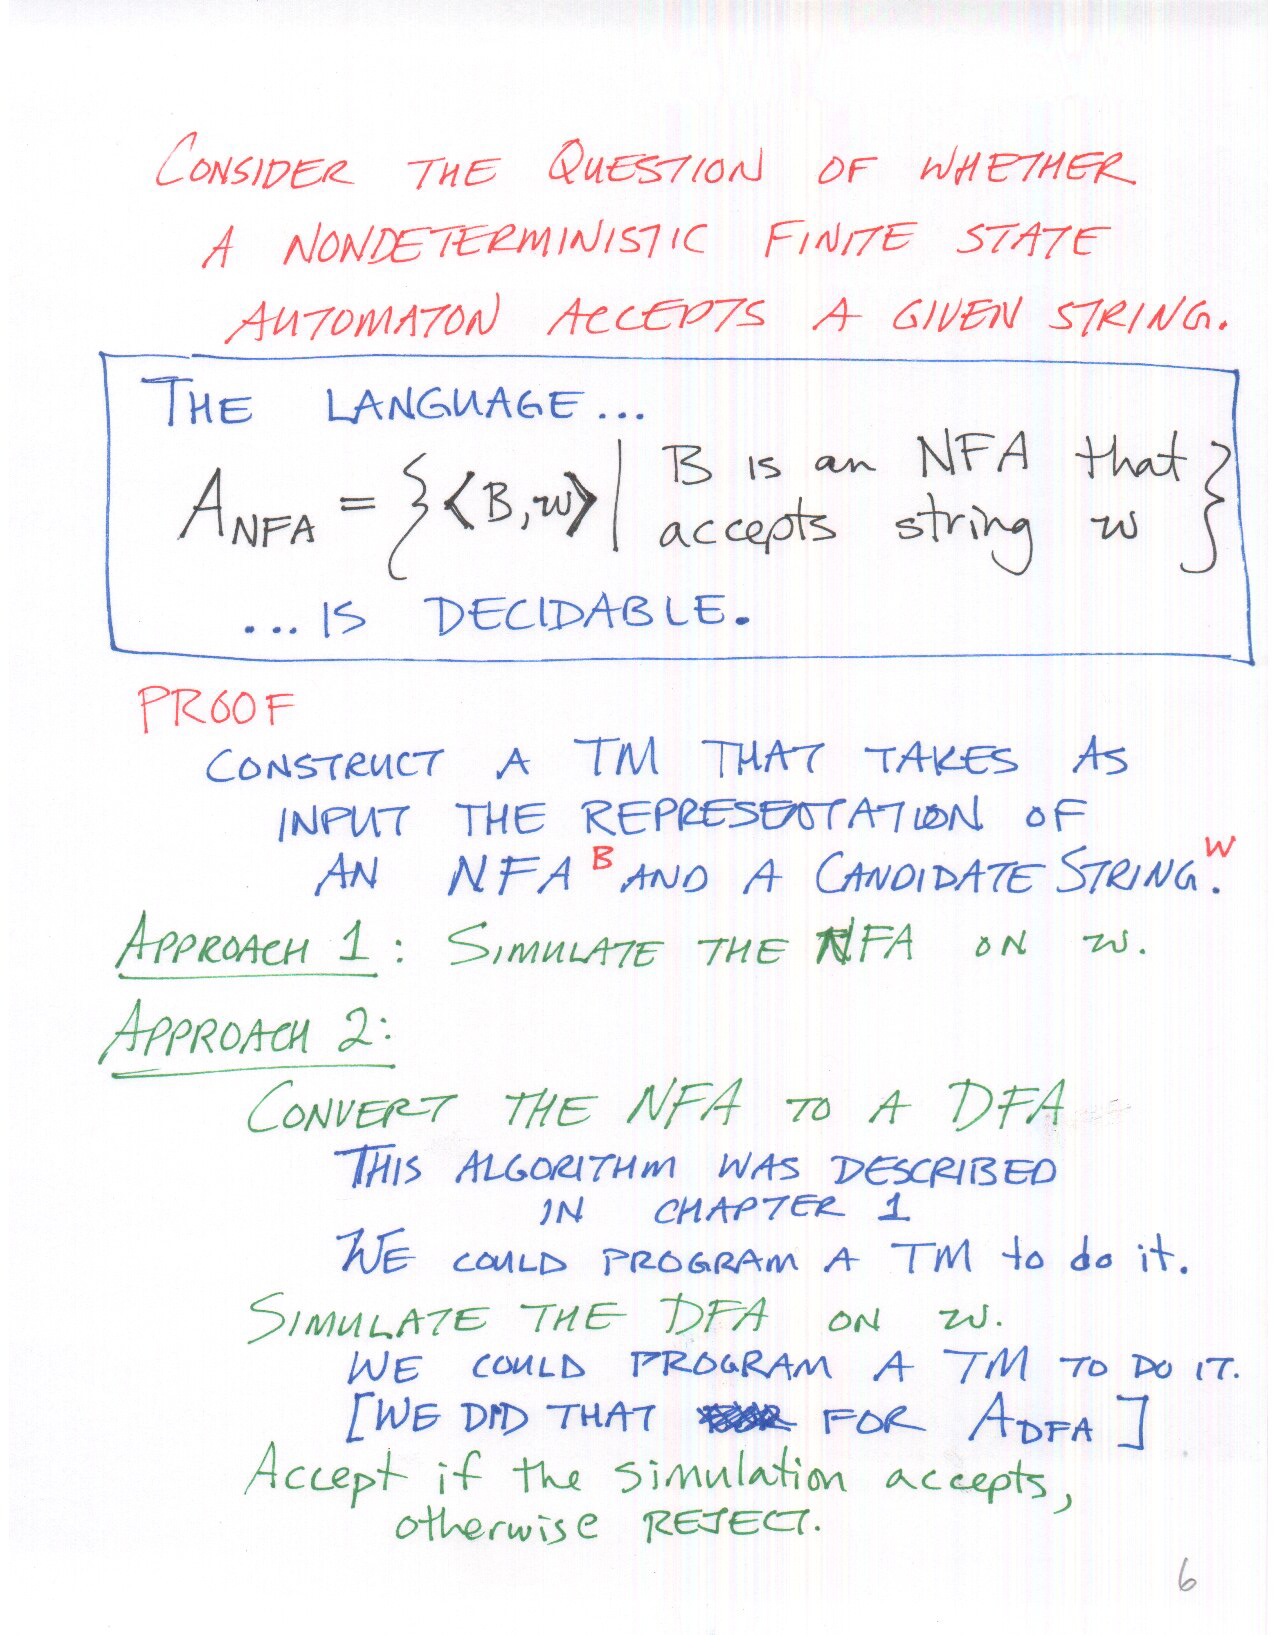 CONSIDER THE QUESTION OF WHETHER
A NONDETERMINISTIC FINITE STATE
AUTOMATON ACCEPTS A GIVEN STRING.
THE LANGUAGE...
A_NFA = {⟨B,w⟩ | B is an NFA that
accepts string w}
...IS DECIDABLE.
PROOF
CONSTRUCT A TM THAT TAKES AS
INPUT THE REPRESENTATION OF
AN NFA B AND A CANDIDATE STRING. W
APPROACH 1: SIMULATE THE NFA ON w.
APPROACH 2:
CONVERT THE NFA TO A DFA
THIS ALGORITHM WAS DESCRIBED
IN CHAPTER 1
WE COULD PROGRAM A TM to do it.
SIMULATE THE DFA ON w.
WE COULD PROGRAM A TM TO DO IT.
[WE DID THAT FOR A_DFA]
Accept if the simulation accepts,
otherwise REJECT.
6